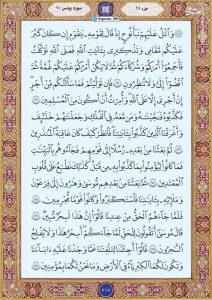 جزء ١١
سورة يونس ١٠
وَاتْلُ عَلَيْهِمْ نَبَأَ نُوحٍ إِذْ قَالَ لِقَوْمِهِ يَا قَوْمِ إِنْ كَانَ كَبُرَ
عَلَيْكُمْ مَقَامِي وَتَذْكِيرِي بِآيَاتِ اللَّهِ فَعَلَى اللَّهِ تَوَكَّلْتُ
فَأَجْمِعُوا أَمْرَكُمْ وَشُرَكَاءَكُمْ ثُمَّ لَا يَكُنْ أَمْرُكُمْ عَلَيْكُمْ غُمَّةً ثُمَّ
اقْضُوا إِلَيَّ وَلَا تُنْظِرُونِ ٧١ فَإِنْ تَوَلَّيْتُمْ فَمَا سَأَلْتُكُمْ مِنْ أَجْرٍ
إِنْ أَجْرِيَ إِلَّا عَلَى اللَّهِ وَأُمِرْتُ أَنْ أَكُونَ مِنَ الْمُسْلِمِينَ ٧٢
فَكَذَّبُوهُ فَنَجَّيْنَاهُ وَمَنْ مَعَهُ فِي الْفُلْكِ وَجَعَلْنَاهُمْ خَلَائِفَ
وَأَغْرَقْنَا الَّذِينَ كَذَّبُوا بِآيَاتِنَا فَانْظُرْ كَيْفَ كَانَ عَاقِبَةُ الْمُنْذَرِينَ
٧٣ ثُمَّ بَعَثْنَا مِنْ بَعْدِهِ رُسُلًا إِلَى قَوْمِهِمْ فَجَاءُوهُمْ بِالْبَيِّنَاتِ
فَمَا كَانُوا لِيُؤْمِنُوا بِمَا كَذَّبُوا بِهِ مِنْ قَبْلُ كَذَلِكَ نَطْبَعُ عَلَى قُلُوبِ
الْمُعْتَدِينَ ٧٤ ثُمَّ بَعَثْنَا مِنْ بَعْدِهِمْ مُوسَى وَهَارُونَ إِلَى فِرْعَوْنَ
وَمَلَئِهِ بِآيَاتِنَا فَاسْتَكْبَرُوا وَكَانُوا قَوْمًا مُجْرِمِينَ ٧٥
فَلَمَّا جَاءَهُمُ الْحَقُّ مِنْ عِنْدِنَا قَالُوا إِنَّ هَذَا لَسِحْرٌ مُبِينٌ ٧٦
قَالَ مُوسَى أَتَقُولُونَ لِلْحَقِّ لَمَّا جَاءَكُمْ أَسِحْرٌ هَذَا وَلَا يُفْلِحُ
السَّاحِرُونَ ٧٧ قَالُوا أَجِئْتَنَا لِتَلْفِتَنَا عَمَّا وَجَدْنَا عَلَيْهِ آبَاءَنَا
وَتَكُونَ لَكُمَا الْكِبْرِيَاءُ فِي الْأَرْضِ وَمَا نَحْنُ لَكُمَا بِمُؤْمِنِينَ ٧٨
٢١٧